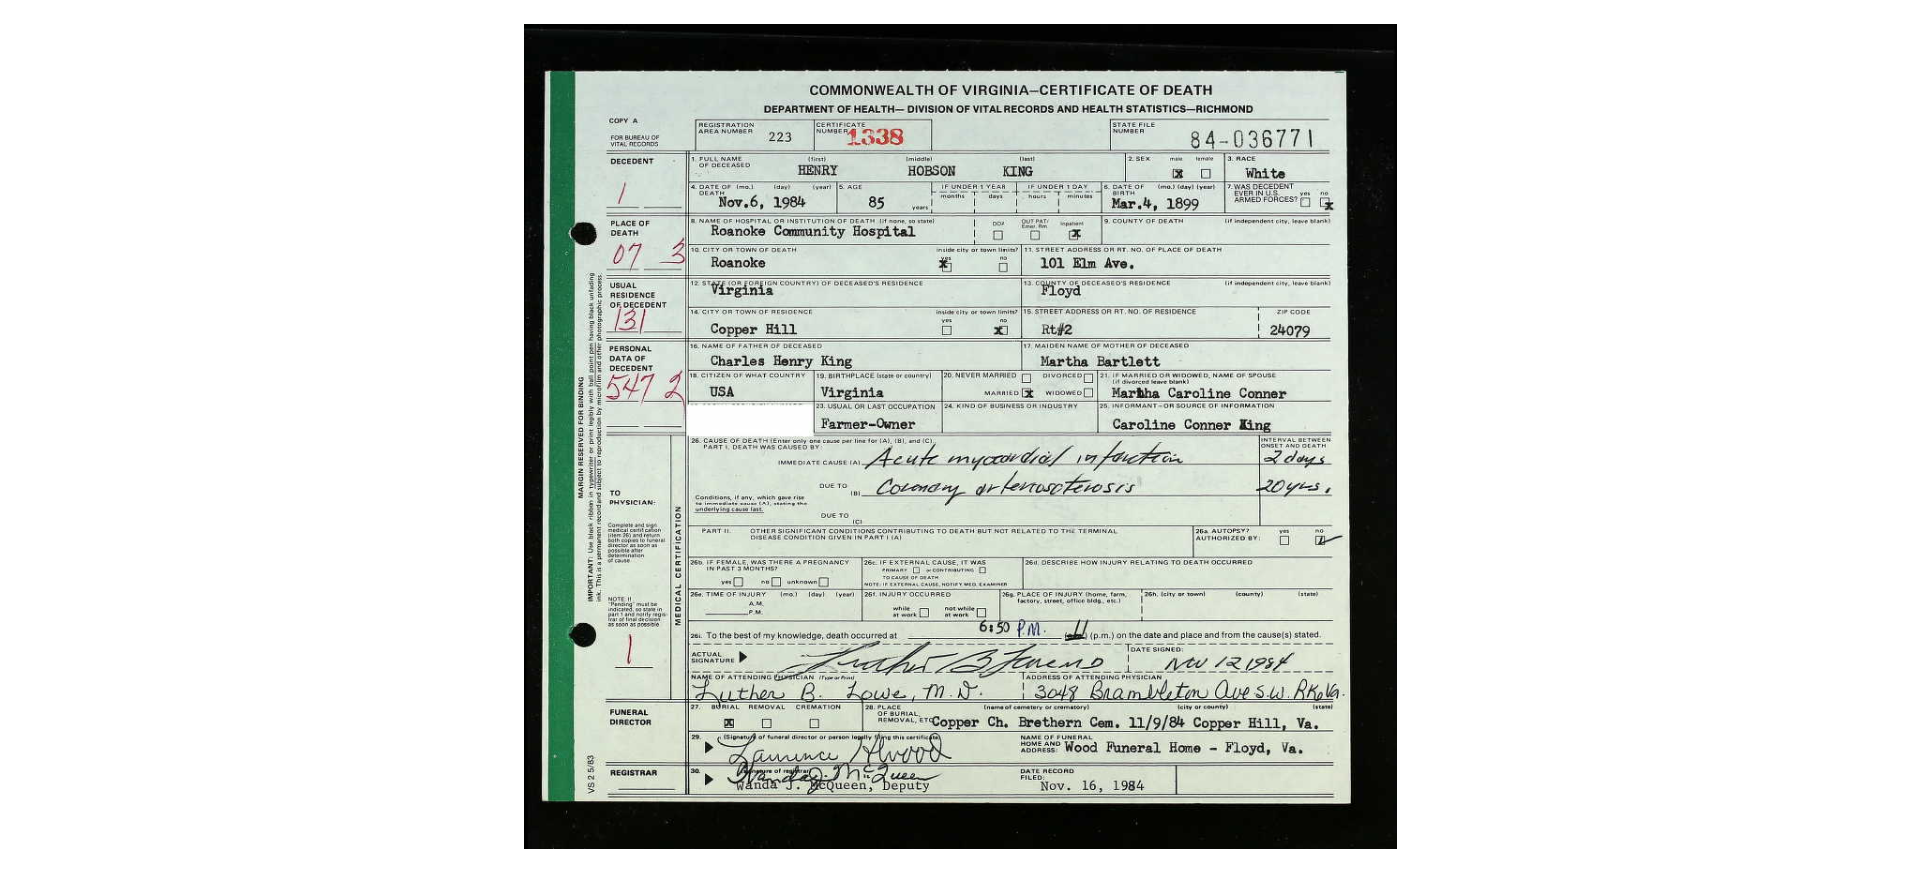 COMMONWEALTH OF VIRGINIA—CERTIFICATE OF DEATH
DEPARTMENT OF HEALTH— DIVISION OF VITAL RECORDS AND HEALTH STATISTICS—RICHMOND
COPY A
FOR BUREAU OF VITAL RECORDS
REGISTRATION AREA NUMBER 223
CERTIFICATE NUMBER 1338
STATE FILE NUMBER 84-036771
DECEDENT
1
1. FULL NAME OF DECEASED (first) (middle) (last)
HENRY HOBSON KING
2. SEX male female
x
3. RACE
White
4. DATE OF DEATH (mo.) (day) (year)
Nov.6, 1984
5. AGE
85 years
IF UNDER 1 YEAR months days
IF UNDER 1 DAY hours minutes
6. DATE OF BIRTH (mo.) (day) (year)
Mar.4, 1899
7. WAS DECEDENT EVER IN U.S. ARMED FORCES? yes no
x
PLACE OF DEATH
07 3
8. NAME OF HOSPITAL OR INSTITUTION OF DEATH (if none, so state)
Roanoke Community Hospital
DOA OUT PAT/ Emer. Rm. Inpatient
x
9. COUNTY OF DEATH (if independent city, leave blank)
10. CITY OR TOWN OF DEATH inside city or town limits? yes no
Roanoke x
11. STREET ADDRESS OR RT. NO. OF PLACE OF DEATH
101 Elm Ave.
USUAL RESIDENCE OF DECEDENT
131
12. STATE (OR FOREIGN COUNTRY) OF DECEASED'S RESIDENCE
Virginia
13. COUNTY OF DECEASED'S RESIDENCE (if independent city, leave blank)
Floyd
14. CITY OR TOWN OF RESIDENCE inside city or town limits? yes no
Copper Hill x
15. STREET ADDRESS OR RT. NO. OF RESIDENCE
Rt#2
ZIP CODE
24079
PERSONAL DATA OF DECEDENT
547 2
16. NAME OF FATHER OF DECEASED
Charles Henry King
17. MAIDEN NAME OF MOTHER OF DECEASED
Martha Bartlett
18. CITIZEN OF WHAT COUNTRY
USA
19. BIRTHPLACE (state or country)
Virginia
20. NEVER MARRIED DIVORCED
MARRIED x WIDOWED
21. IF MARRIED OR WIDOWED, NAME OF SPOUSE (if divorced leave blank)
Martha Caroline Conner
23. USUAL OR LAST OCCUPATION
Farmer-Owner
24. KIND OF BUSINESS OR INDUSTRY
25. INFORMANT—OR SOURCE OF INFORMATION
Caroline Conner King
MARGIN RESERVED FOR BINDING
MEDICAL CERTIFICATION
TO PHYSICIAN:
Complete and sign medical certification (item 26) and return both copies to funeral director as soon as possible after determination of cause.
NOTE: If "Pending" must be indicated, so state in part 1 and notify registrar of final decision as soon as possible
1
26. CAUSE OF DEATH (Enter only one cause per line for (A), (B), and (C).
PART I. DEATH WAS CAUSED BY:
INTERVAL BETWEEN ONSET AND DEATH
IMMEDIATE CAUSE (A) Acute myocardial infarction 2 days
DUE TO (B) Coronary 20 yrs.
Conditions, if any, which gave rise to immediate cause (A), stating the underlying cause last.
DUE TO (C)
PART II. OTHER SIGNIFICANT CONDITIONS CONTRIBUTING TO DEATH BUT NOT RELATED TO THE TERMINAL DISEASE CONDITION GIVEN IN PART I (A)
26a. AUTOPSY? AUTHORIZED BY: yes no
26b. IF FEMALE, WAS THERE A PREGNANCY IN PAST 3 MONTHS?
yes no unknown
26c. IF EXTERNAL CAUSE, IT WAS
PRIMARY or CONTRIBUTING
TO CAUSE OF DEATH
NOTE: IF EXTERNAL CAUSE, NOTIFY MED. EXAMINER
26d. DESCRIBE HOW INJURY RELATING TO DEATH OCCURRED
26e. TIME OF INJURY (mo.) (day) (year)
A.M.
P.M.
26f. INJURY OCCURRED
while at work not while at work
26g. PLACE OF INJURY (home, farm, factory, street, office bldg., etc.)
26h. (city or town) (county) (state)
26i. To the best of my knowledge, death occurred at 6:50 P.M. (p.m.) on the date and place and from the cause(s) stated.
ACTUAL SIGNATURE
DATE SIGNED: Nov 12 1984
NAME OF ATTENDING PHYSICIAN (Type or Print)
Luther B. Lowe, M.D.
ADDRESS OF ATTENDING PHYSICIAN
3048 Brambleton Ave S.W. RKe Va.
FUNERAL DIRECTOR
27. BURIAL REMOVAL CREMATION
x
28. PLACE OF BURIAL, REMOVAL, ETC. (name of cemetery or crematory) (city or county) (state)
Copper Ch. Brethern Cem. 11/9/84 Copper Hill, Va.
29. (Signature of funeral director or person legally filing this certificate)
NAME OF FUNERAL HOME AND ADDRESS: Wood Funeral Home - Floyd, Va.
REGISTRAR
30. (Signature of registrar)
Wanda J. McQueen
Wanda J. McQueen, Deputy
DATE RECORD FILED:
Nov. 16, 1984
VS 2 5/83